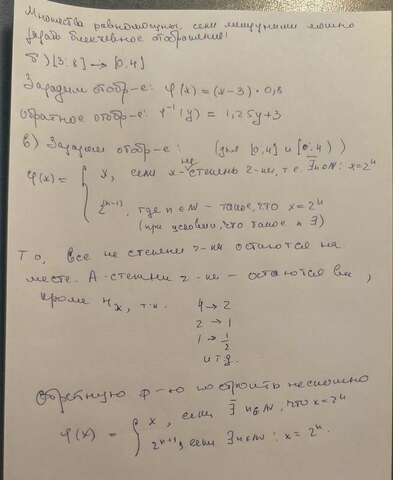 Множества равномощны, если между ними можно
задать биективное отображение!
б) [3; 8] → [0,4]
Зададим отобр-е: φ(x) = (x-3)·0,8
Обратное отобр-е: φ⁻¹(y) = 1,25y+3
в) Зададим отобр-е: (для [0,4] и [0;4))
φ(x) = { x, если x - не степень 2-ки, т.е. ∄n∈N: x=2ⁿ
2^(n-1), где n∈N - такое, что x=2ⁿ
(при условии, что такое n ∃)
То, все не степени 2-ки остаются на
месте. А степени 2-ки - остаются
кроме т.к. 4 → 2
2 → 1
1 → 1/2
и т.д.
Обратную ф-ю построить несложно
φ(x) = { x, если ∄ n∈N, что x=2ⁿ
2ⁿ⁺¹, если ∃n∈N: x=2ⁿ.